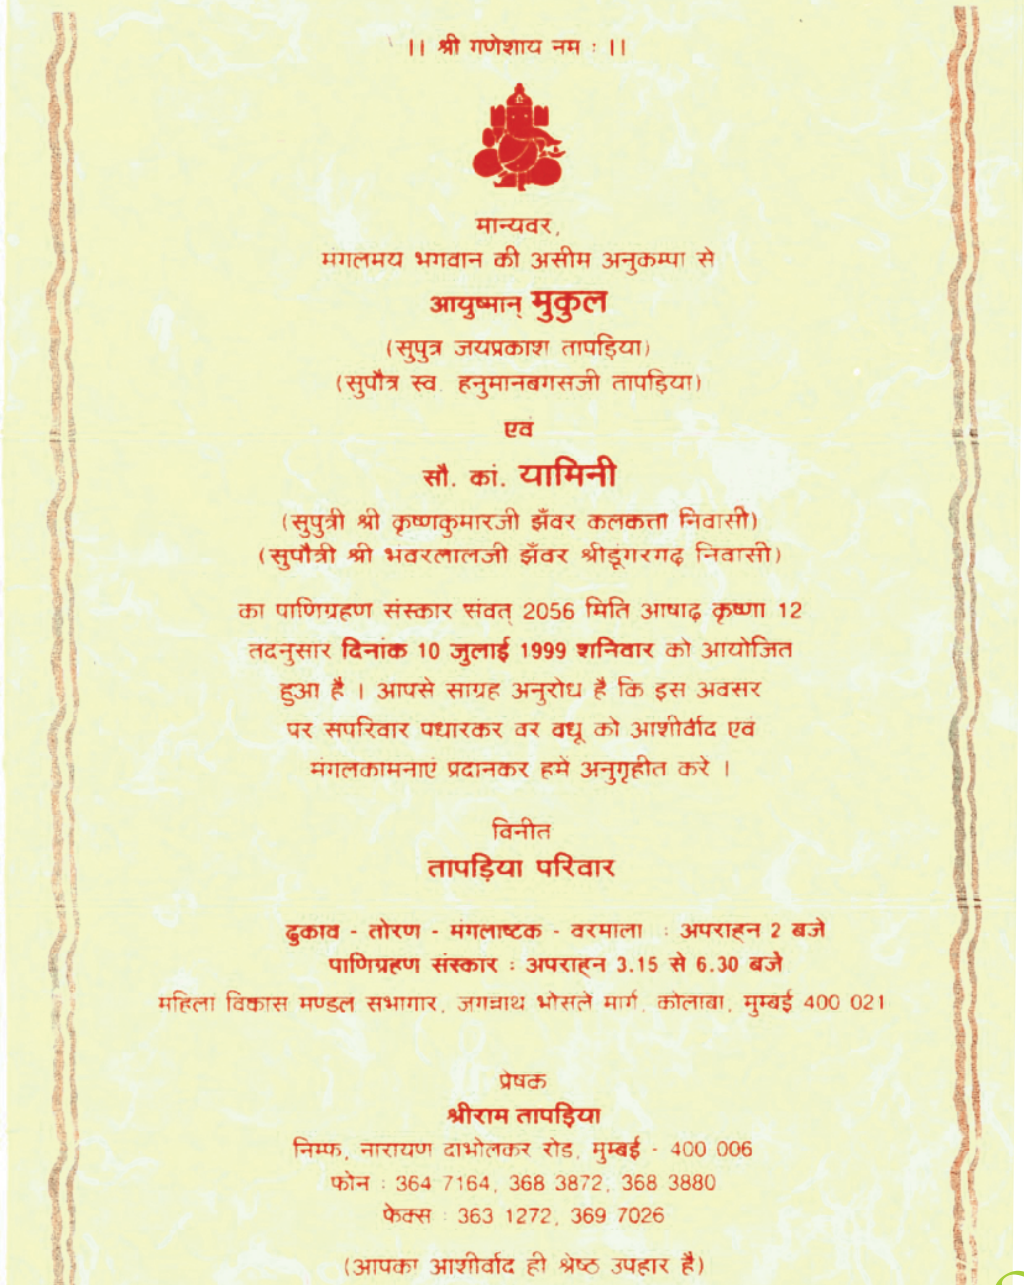 || श्री गणेशाय नम : ||
मान्यवर,
मंगलमय भगवान की असीम अनुकम्पा से
आयुष्मान् मुकुल
(सुपुत्र जयप्रकाश तापड़िया)
(सुपौत्र स्व. हनुमानबगसजी तापड़िया)
एवं
सौ. कां. यामिनी
(सुपुत्री श्री कृष्णकुमारजी झँवर कलकत्ता निवासी)
(सुपौत्री श्री भंवरलालजी झँवर श्रीडूंगरगढ़ निवासी)
का पाणिग्रहण संस्कार संवत् 2056 मिति आषाढ़ कृष्णा 12
तदनुसार दिनांक 10 जुलाई 1999 शनिवार को आयोजित
हुआ है । आपसे साग्रह अनुरोध है कि इस अवसर
पर सपरिवार पधारकर वर वधू को आशीर्वाद एवं
मंगलकामनाएं प्रदानकर हमें अनुगृहीत करे ।
विनीत
तापड़िया परिवार
ढुकाव - तोरण - मंगलाष्टक - वरमाला : अपराह्न 2 बजे
पाणिग्रहण संस्कार : अपराह्न 3.15 से 6.30 बजे
महिला विकास मण्डल सभागार, जगन्नाथ भोसले मार्ग, कोलाबा, मुम्बई 400 021
प्रेषक
श्रीराम तापड़िया
निम्फ, नारायण दाभोलकर रोड, मुम्बई - 400 006
फोन : 364 7164, 368 3872, 368 3880
फेक्स : 363 1272, 369 7026
(आपका आशीर्वाद ही श्रेष्ठ उपहार है)